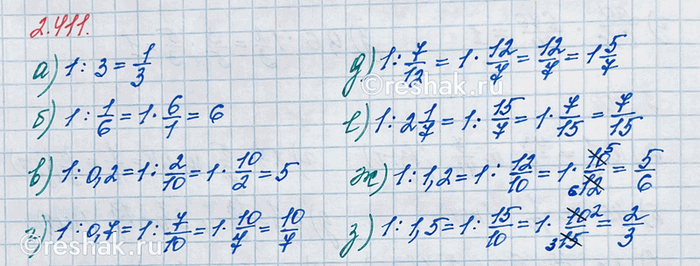 2.411.
а) 1 : 3 = 1/3
б) 1 : 1/6 = 1 · 6/1 = 6
в) 1 : 0,2 = 1 : 2/10 = 1 · 10/2 = 5
г) 1 : 0,7 = 1 : 7/10 = 1 · 10/7 = 10/7
д) 1 : 7/12 = 1 · 12/7 = 12/7 = 1 5/7
е) 1 : 2 1/7 = 1 : 15/7 = 1 · 7/15 = 7/15
ж) 1 : 1,2 = 1 : 12/10 = 1 · 10 5/6 12 = 5/6
з) 1 : 1,5 = 1 : 15/10 = 1 · 10 2/3 15 = 2/3
©reshak.ru
©reshak.ru